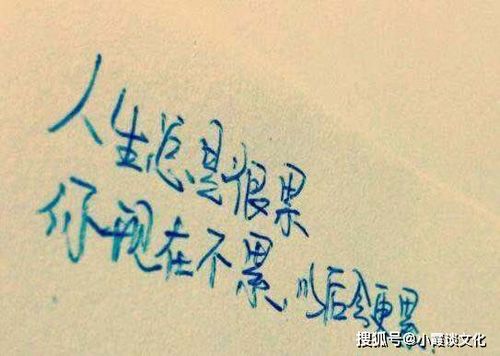 人生总是很累
你现在不累，以后会更累
搜狐号@小霞谈文化